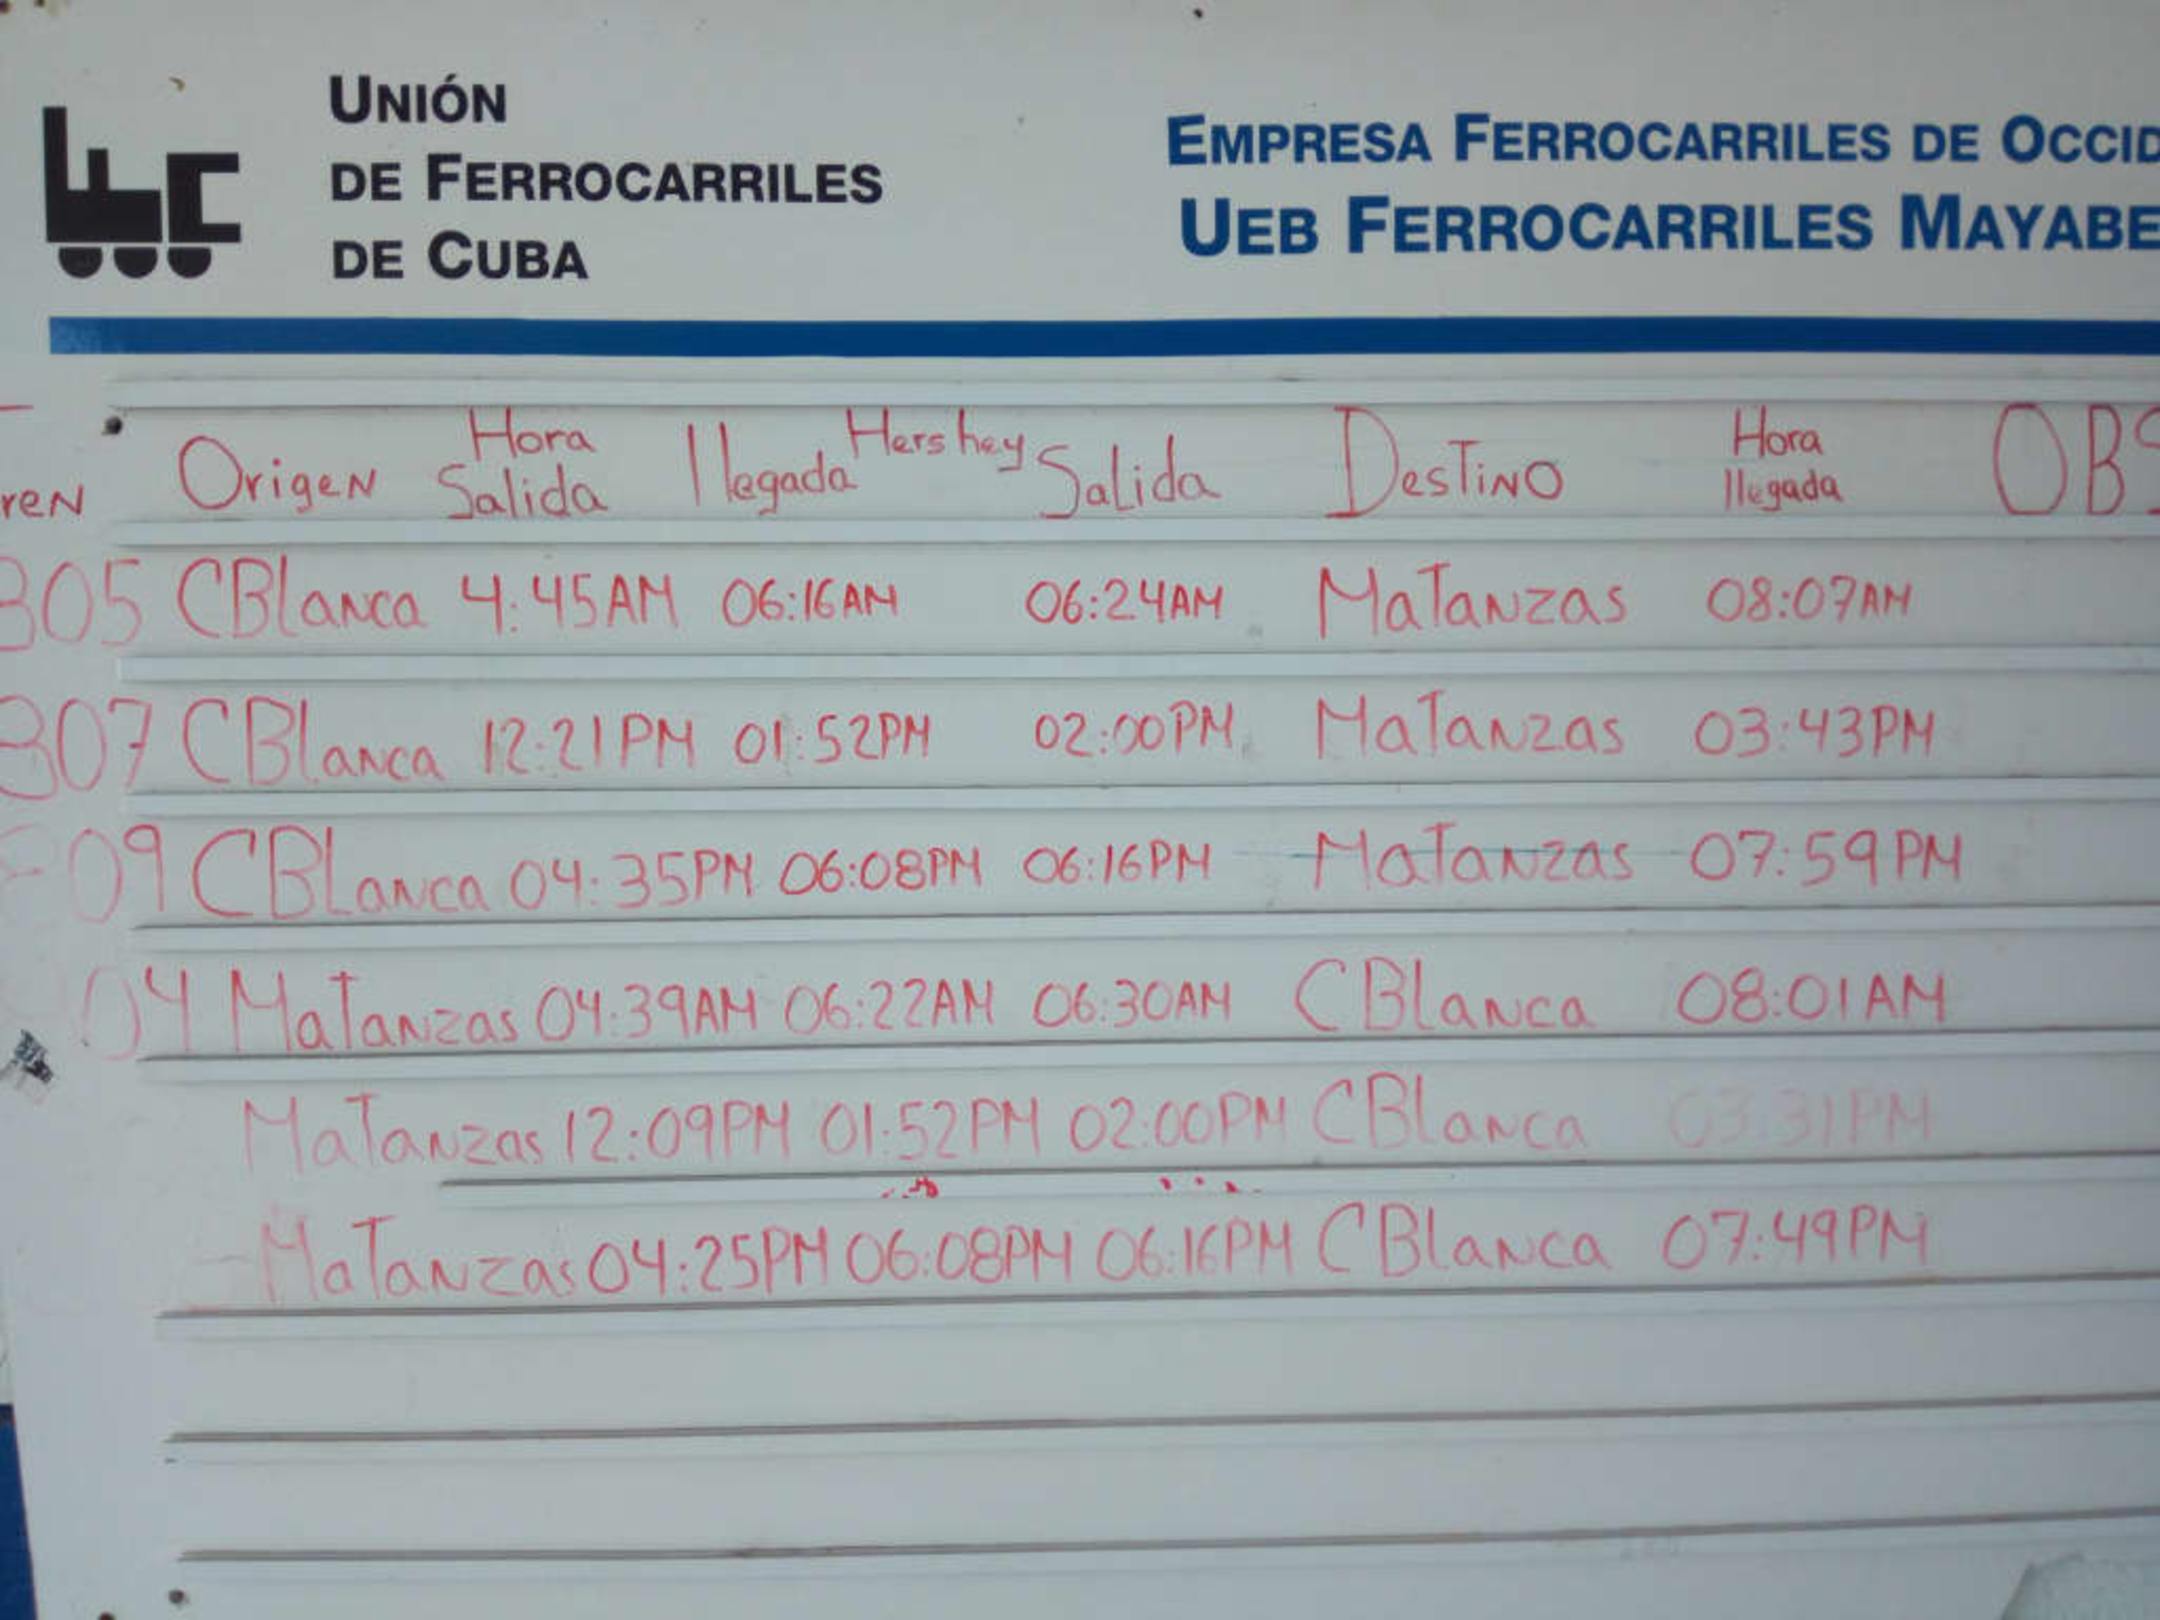 UNIÓN
DE FERROCARRILES
DE CUBA
EMPRESA FERROCARRILES DE OCCID
UEB FERROCARRILES MAYABE
reN Origen Hora Salida llegada Hershey Salida Destino Hora llegada OBS
305 CBlanca 4:45AM 06:16AM 06:24AM Matanzas 08:07AM
307 CBlanca 12:21PM 01:52PM 02:00PM Matanzas 03:43PM
09 CBlanca 04:35PM 06:08PM 06:16PM Matanzas 07:59PM
04 Matanzas 04:39AM 06:22AM 06:30AM CBlanca 08:01AM
Matanzas 12:09PM 01:52PM 02:00PM CBlanca 03:31PM
Matanzas 04:25PM 06:08PM 06:16PM CBlanca 07:49PM